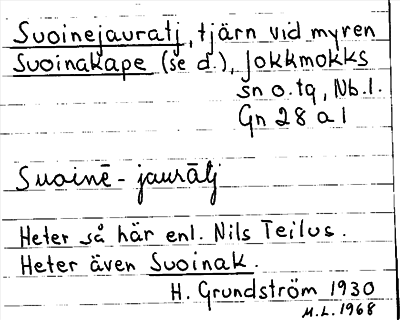 Suoinejauratj, tjärn vid myren
Suoinakape (se d.), Jokkmokks
sn o. tq, Nb. l.
Gn 28 a 1
Suoinē-jaurātj
Heter så här enl. Nils Teilus.
Heter även Suoinak.
H. Grundström 1930
M.L. 1968